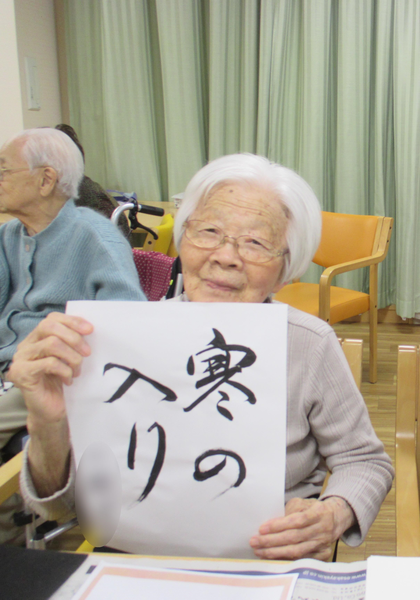 寒の
入り